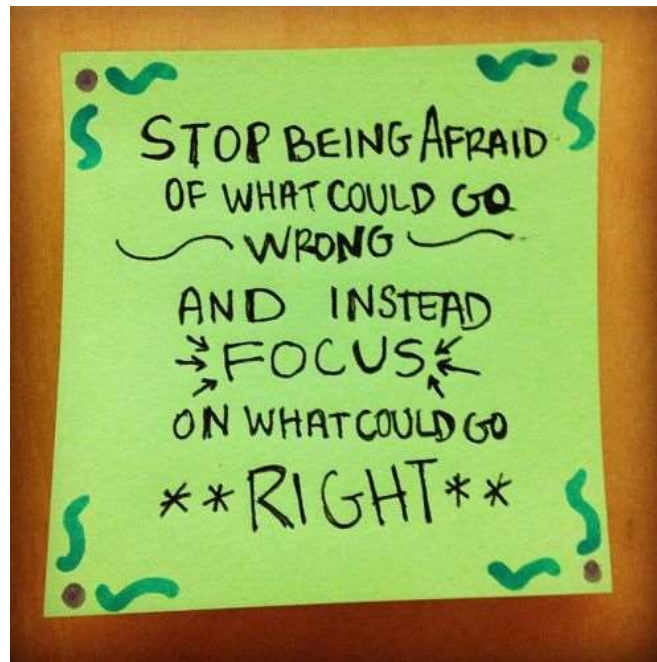 STOP BEING AFRAID
OF WHAT COULD GO
WRONG
AND INSTEAD
FOCUS
ON WHAT COULD GO
**RIGHT**